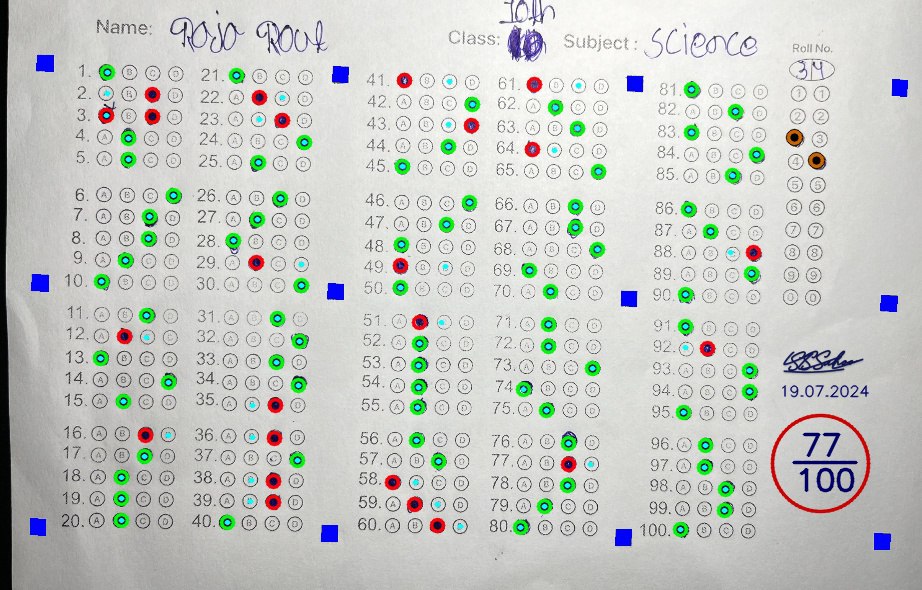 Name: Raja Rout Class: 10th Subject: Science
Roll No.
34
1. A B C D
2. A B C D
3. A B C D
4. A B C D
5. A B C D
6. A B C D
7. A B C D
8. A B C D
9. A B C D
10. A B C D
11. A B C D
12. A B C D
13. A B C D
14. A B C D
15. A B C D
16. A B C D
17. A B C D
18. A B C D
19. A B C D
20. A B C D
21. A B C D
22. A B C D
23. A B C D
24. A B C D
25. A B C D
26. A B C D
27. A B C D
28. A B C D
29. A B C D
30. A B C D
31. A B C D
32. A B C D
33. A B C D
34. A B C D
35. A B C D
36. A B C D
37. A B C D
38. A B C D
39. A B C D
40. A B C D
41. A B C D
42. A B C D
43. A B C D
44. A B C D
45. A B C D
46. A B C D
47. A B C D
48. A B C D
49. A B C D
50. A B C D
51. A B C D
52. A B C D
53. A B C D
54. A B C D
55. A B C D
56. A B C D
57. A B C D
58. A B C D
59. A B C D
60. A B C D
61. A B C D
62. A B C D
63. A B C D
64. A B C D
65. A B C D
66. A B C D
67. A B C D
68. A B C D
69. A B C D
70. A B C D
71. A B C D
72. A B C D
73. A B C D
74. A B C D
75. A B C D
76. A B C D
77. A B C D
78. A B C D
79. A B C D
80. A B C D
81. A B C D
82. A B C D
83. A B C D
84. A B C D
85. A B C D
86. A B C D
87. A B C D
88. A B C D
89. A B C D
90. A B C D
91. A B C D
92. A B C D
93. A B C D
94. A B C D
95. A B C D
96. A B C D
97. A B C D
98. A B C D
99. A B C D
100. A B C D
1 1
2 2
3
4
5 5
6 6
7 7
8 8
9 9
0 0
19.07.2024
77
100